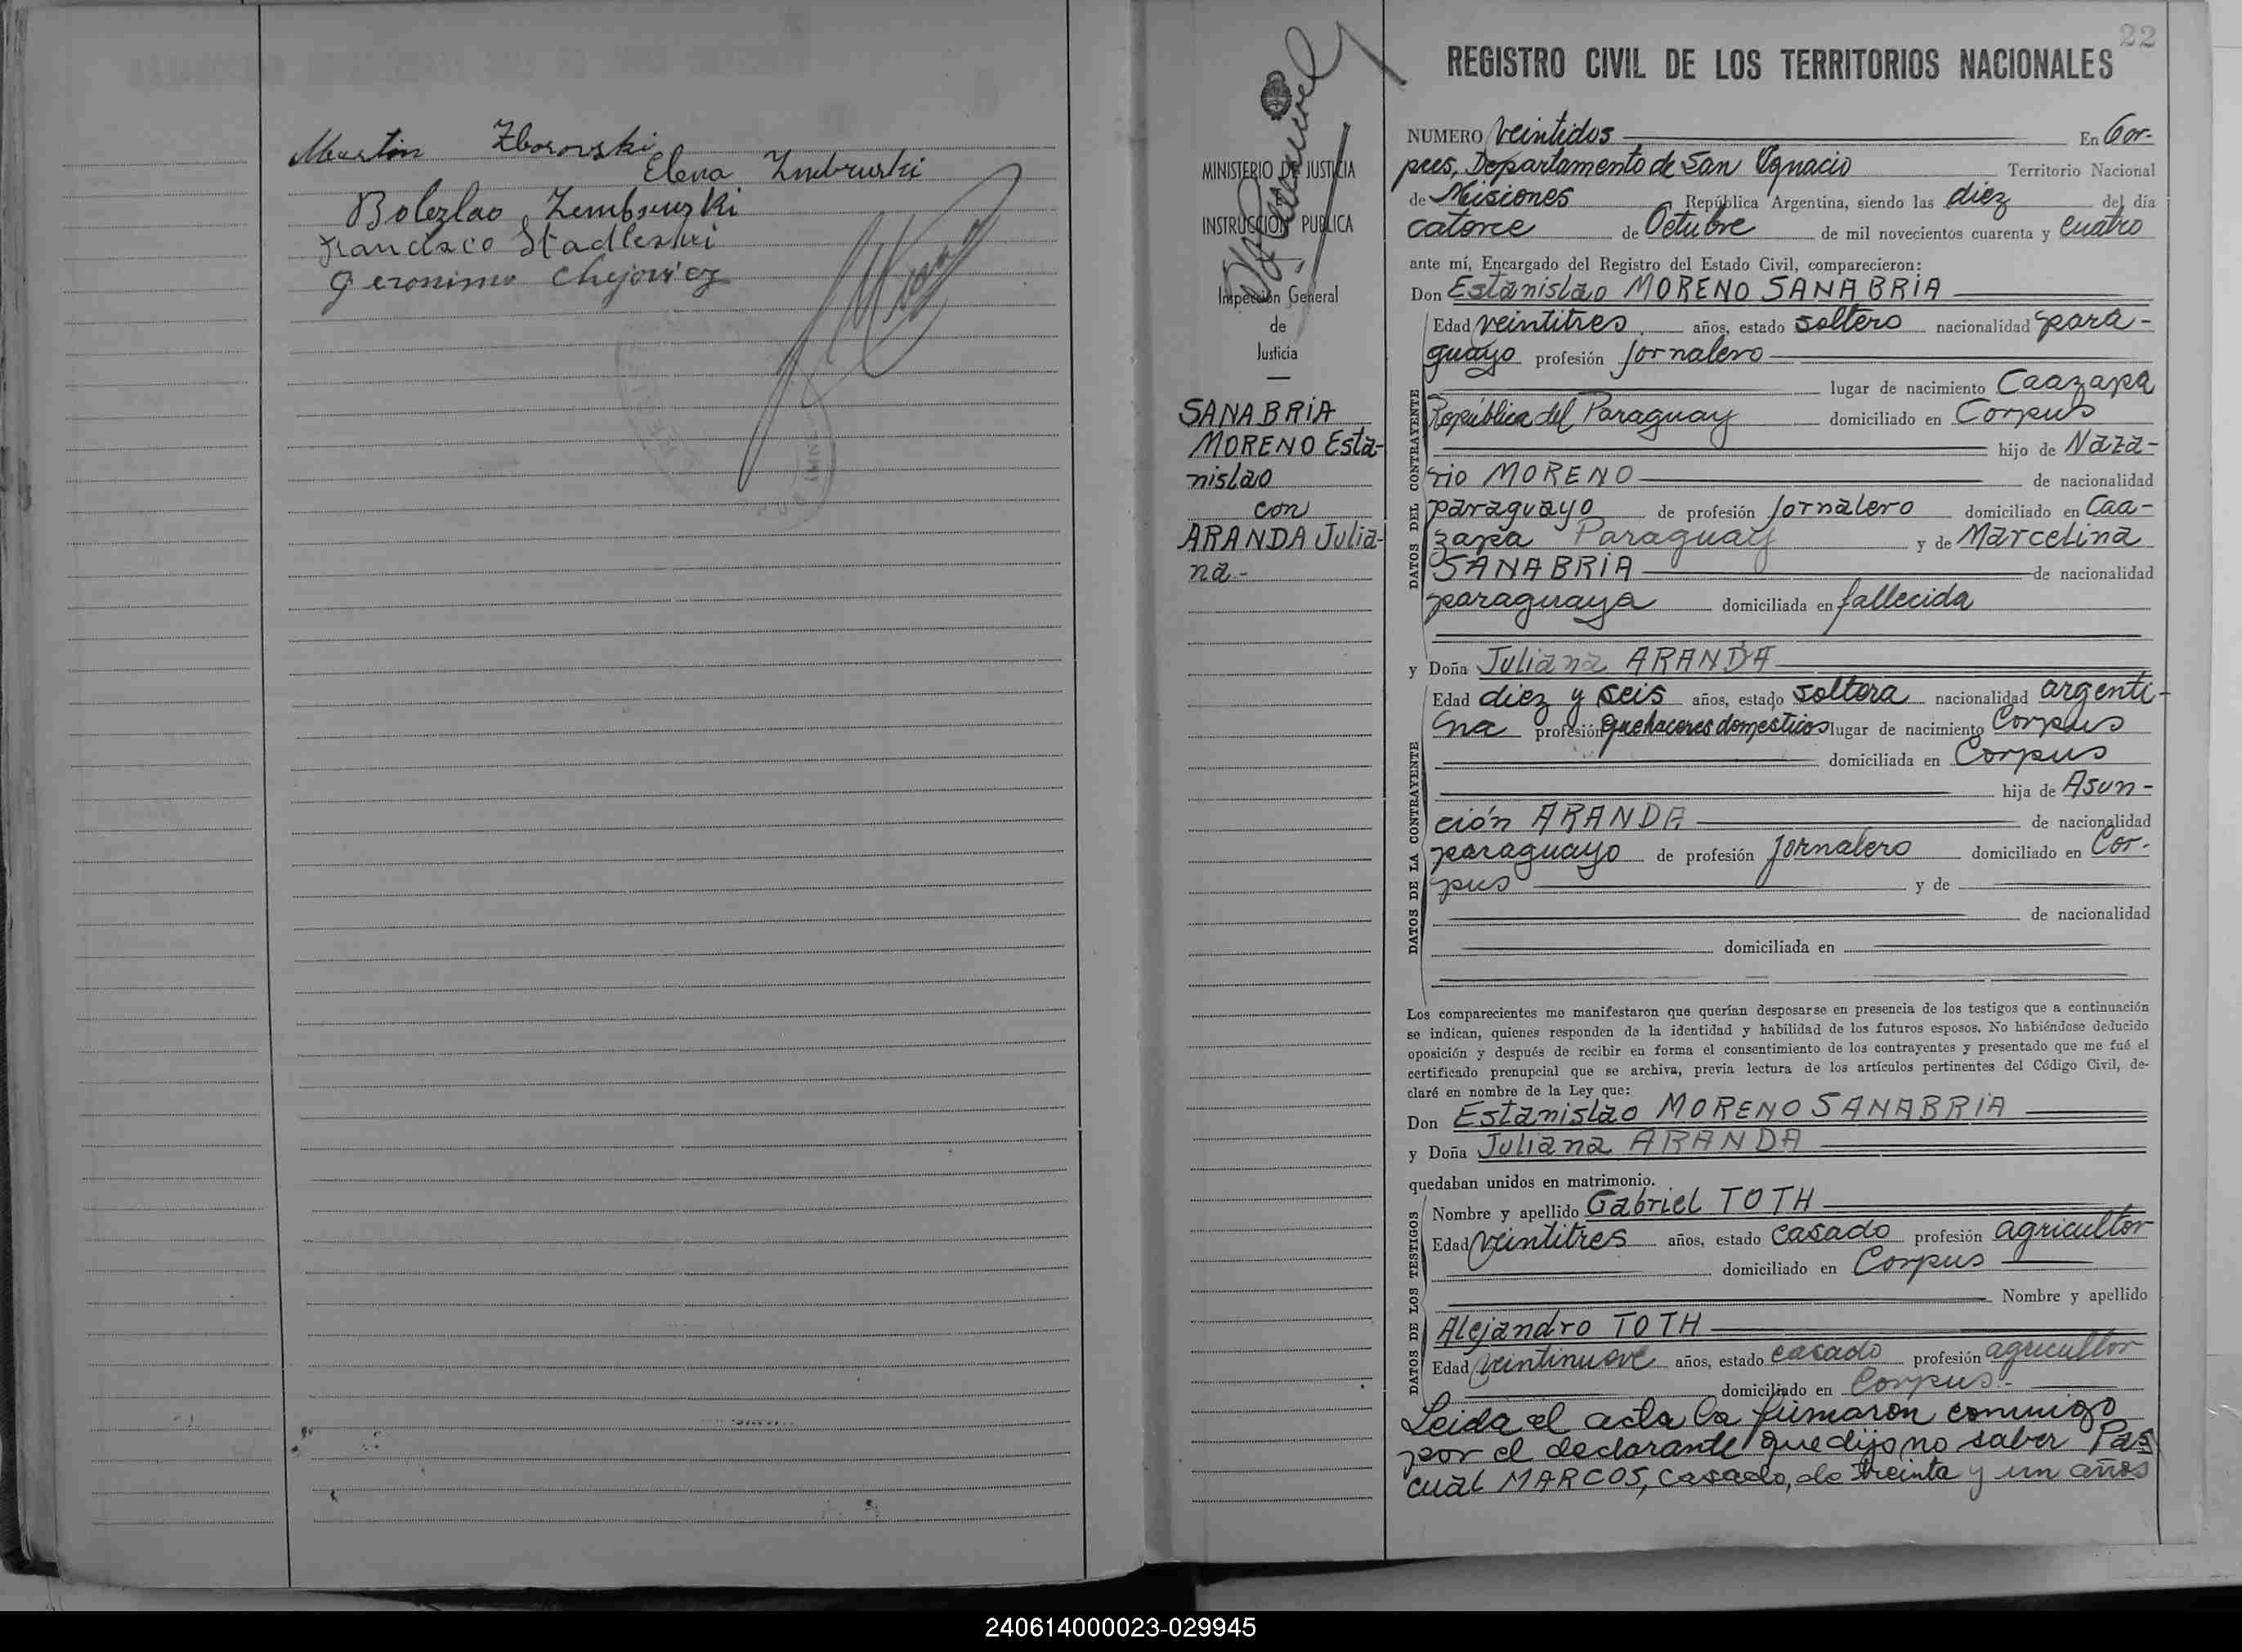 Martin Zborowski
Elena Zmbruski
Bolezlao Zembruzki
Francisco Stadleski
Geronimo Chejovicz
22
REGISTRO CIVIL DE LOS TERRITORIOS NACIONALES
MINISTERIO DE JUSTICIA
E
INSTRUCCION PUBLICA
Inspección General
de
Justicia
SANABRIA
MORENO Esta-
nislao
con
ARANDA Julia-
na.-
NUMERO veintidos En Cor-
pus, Departamento de San Ignacio Territorio Nacional
de Misiones República Argentina, siendo las diez del día
catorce de Octubre de mil novecientos cuarenta y cuatro
ante mí, Encargado del Registro del Estado Civil, comparecieron:
Don Estanislao MORENO SANABRIA
DATOS DEL CONTRAYENTE
Edad veintitres años, estado soltero nacionalidad para-
guayo profesión jornalero
lugar de nacimiento Caazapa
República del Paraguay domiciliado en Corpus
hijo de Naza-
rio MORENO de nacionalidad
paraguayo de profesión jornalero domiciliado en Caa-
zapa Paraguay y de Marcelina
SANABRIA de nacionalidad
paraguaya domiciliada en fallecida
y Doña Juliana ARANDA
DATOS DE LA CONTRAYENTE
Edad diez y seis años, estado soltera nacionalidad argenti-
na profesión quehaceres domesticos lugar de nacimiento Corpus
domiciliada en Corpus
hija de Asun-
ción ARANDA de nacionalidad
paraguayo de profesión jornalero domiciliado en Cor-
pus y de
de nacionalidad
domiciliada en
Los comparecientes me manifestaron que querían desposarse en presencia de los testigos que a continuación
se indican, quienes responden de la identidad y habilidad de los futuros esposos. No habiéndose deducido
oposición y después de recibir en forma el consentimiento de los contrayentes y presentado que me fué el
certificado prenupcial que se archiva, previa lectura de los artículos pertinentes del Código Civil, de-
claré en nombre de la Ley que:
Don Estanislao MORENO SANABRIA
y Doña Juliana ARANDA
quedaban unidos en matrimonio.
DATOS DE LOS TESTIGOS
Nombre y apellido Gabriel TOTH
Edad veintitres años, estado casado profesión agricultor
domiciliado en Corpus
Nombre y apellido
Alejandro TOTH
Edad veintinueve años, estado casado profesión agricultor
domiciliado en Corpus.-
Leida el acta la firmaron conmigo
por el declarante que dijo no saber Pas
cual MARCOS, casado, de treinta y un años
240614000023-029945